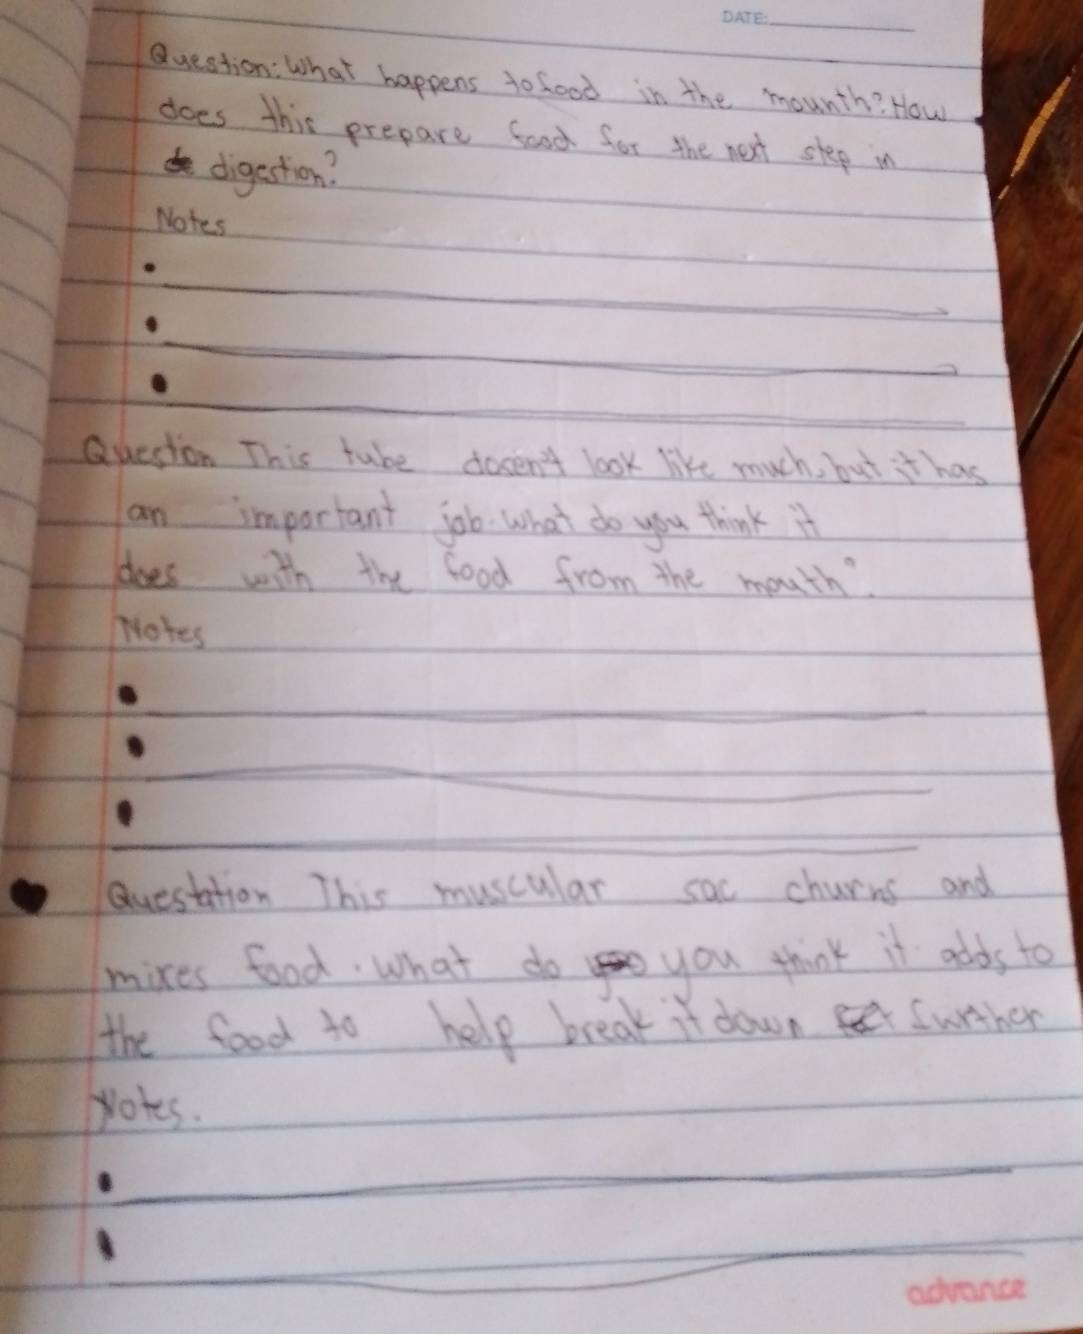 DATE:
Question: What happens to food in the mounth? How
does this prepare food for the next step in
digestion?
Notes
•
•
•
Question This tube dosen't look like much, but it has
an important job. What do you think it
does with the food from the mouth?
Notes
•
•
•
Questation This muscular sac churns and
mixes food. what do you think it adds to
the food to help break it down further
Notes.
•
•
advance